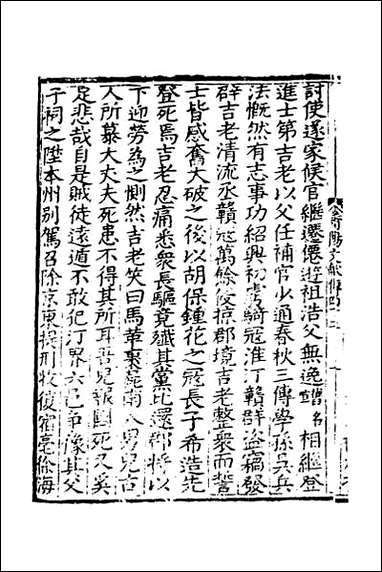 討使遂家候官繼遷僊遊祖浩父無逸皆名相繼登
進士第吉老以父任補官少通春秋三傳學孫吳兵
法慨然有志事功紹興初虔騎冠淮汀贛群盜竊發
辟吉老清流丞贛冦萬餘侵掠郡境吉老整衆而誓
士皆感奮大破之後以胡保鍾花之冦長子希造先
登死焉吉老忍痛悉衆長驅竟殲其黨比還郡將以
下迎勞為之惻然吉老笑曰馬革裹屍南八男兒古
人所慕大丈夫死患不得其所耳吾兒報國死又奚
足悲哉自是賊徒遠遁不敢犯汀界六邑爭像其父
子祠之陞本州别駕召除京東提刑收復宿亳徐海